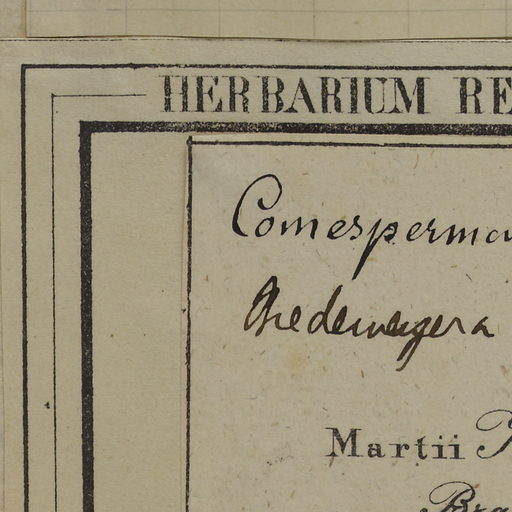 HERBARIUM RE
Comesperma
Bredemeyera
Martii
Bra